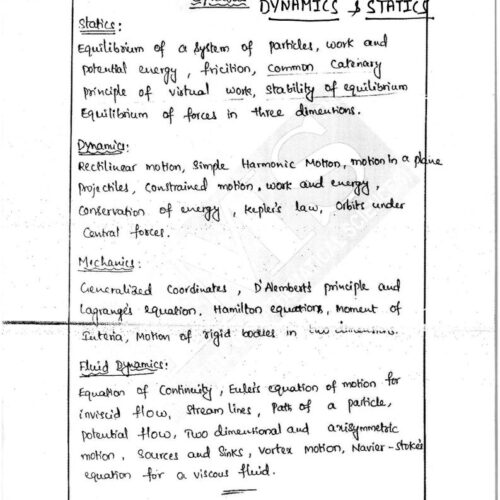 Syllabus DYNAMICS & STATICS
Statics:
Equilibrium of a system of particles, work and
potential energy, fricition, common catenary
principle of virtual work, stability of equilibrium
Equilibrium of forces in three dimentions.
Dynamics:
Rectilinear motion, Simple Harmonic Motion, motion in a plane
Projectiles, constrained motion, work and energy,
Conservation of energy, Kepler's law, Orbits under
Central forces.
Mechanics:
Generalized coordinates, D'Alembert's principle and
Lagrange's equation. Hamilton equations, moment of
Interia, Motion of rigid bodies in two dimensions.
Fluid Dynamics:
Equation of Continuity, Euler's equation of motion for
inviscid flow, Stream lines, Path of a particle,
potential flow, Two dimentional and axisymmetric
motion, Sources and Sinks, Vortex motion, Navier-Stoke's
equation for a viscous fluid.